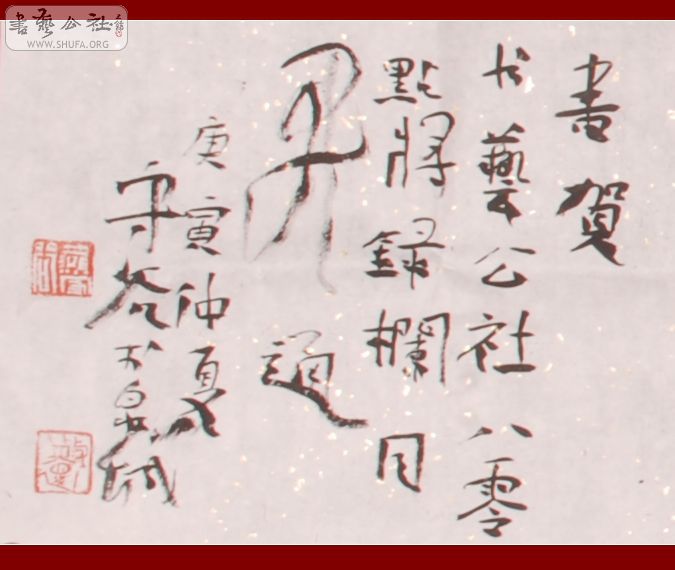 書藝公社
WWW.SHUFA.ORG
書賀
书藝公社八零
點將録欄目
开通
庚寅仲夏
守於泉城